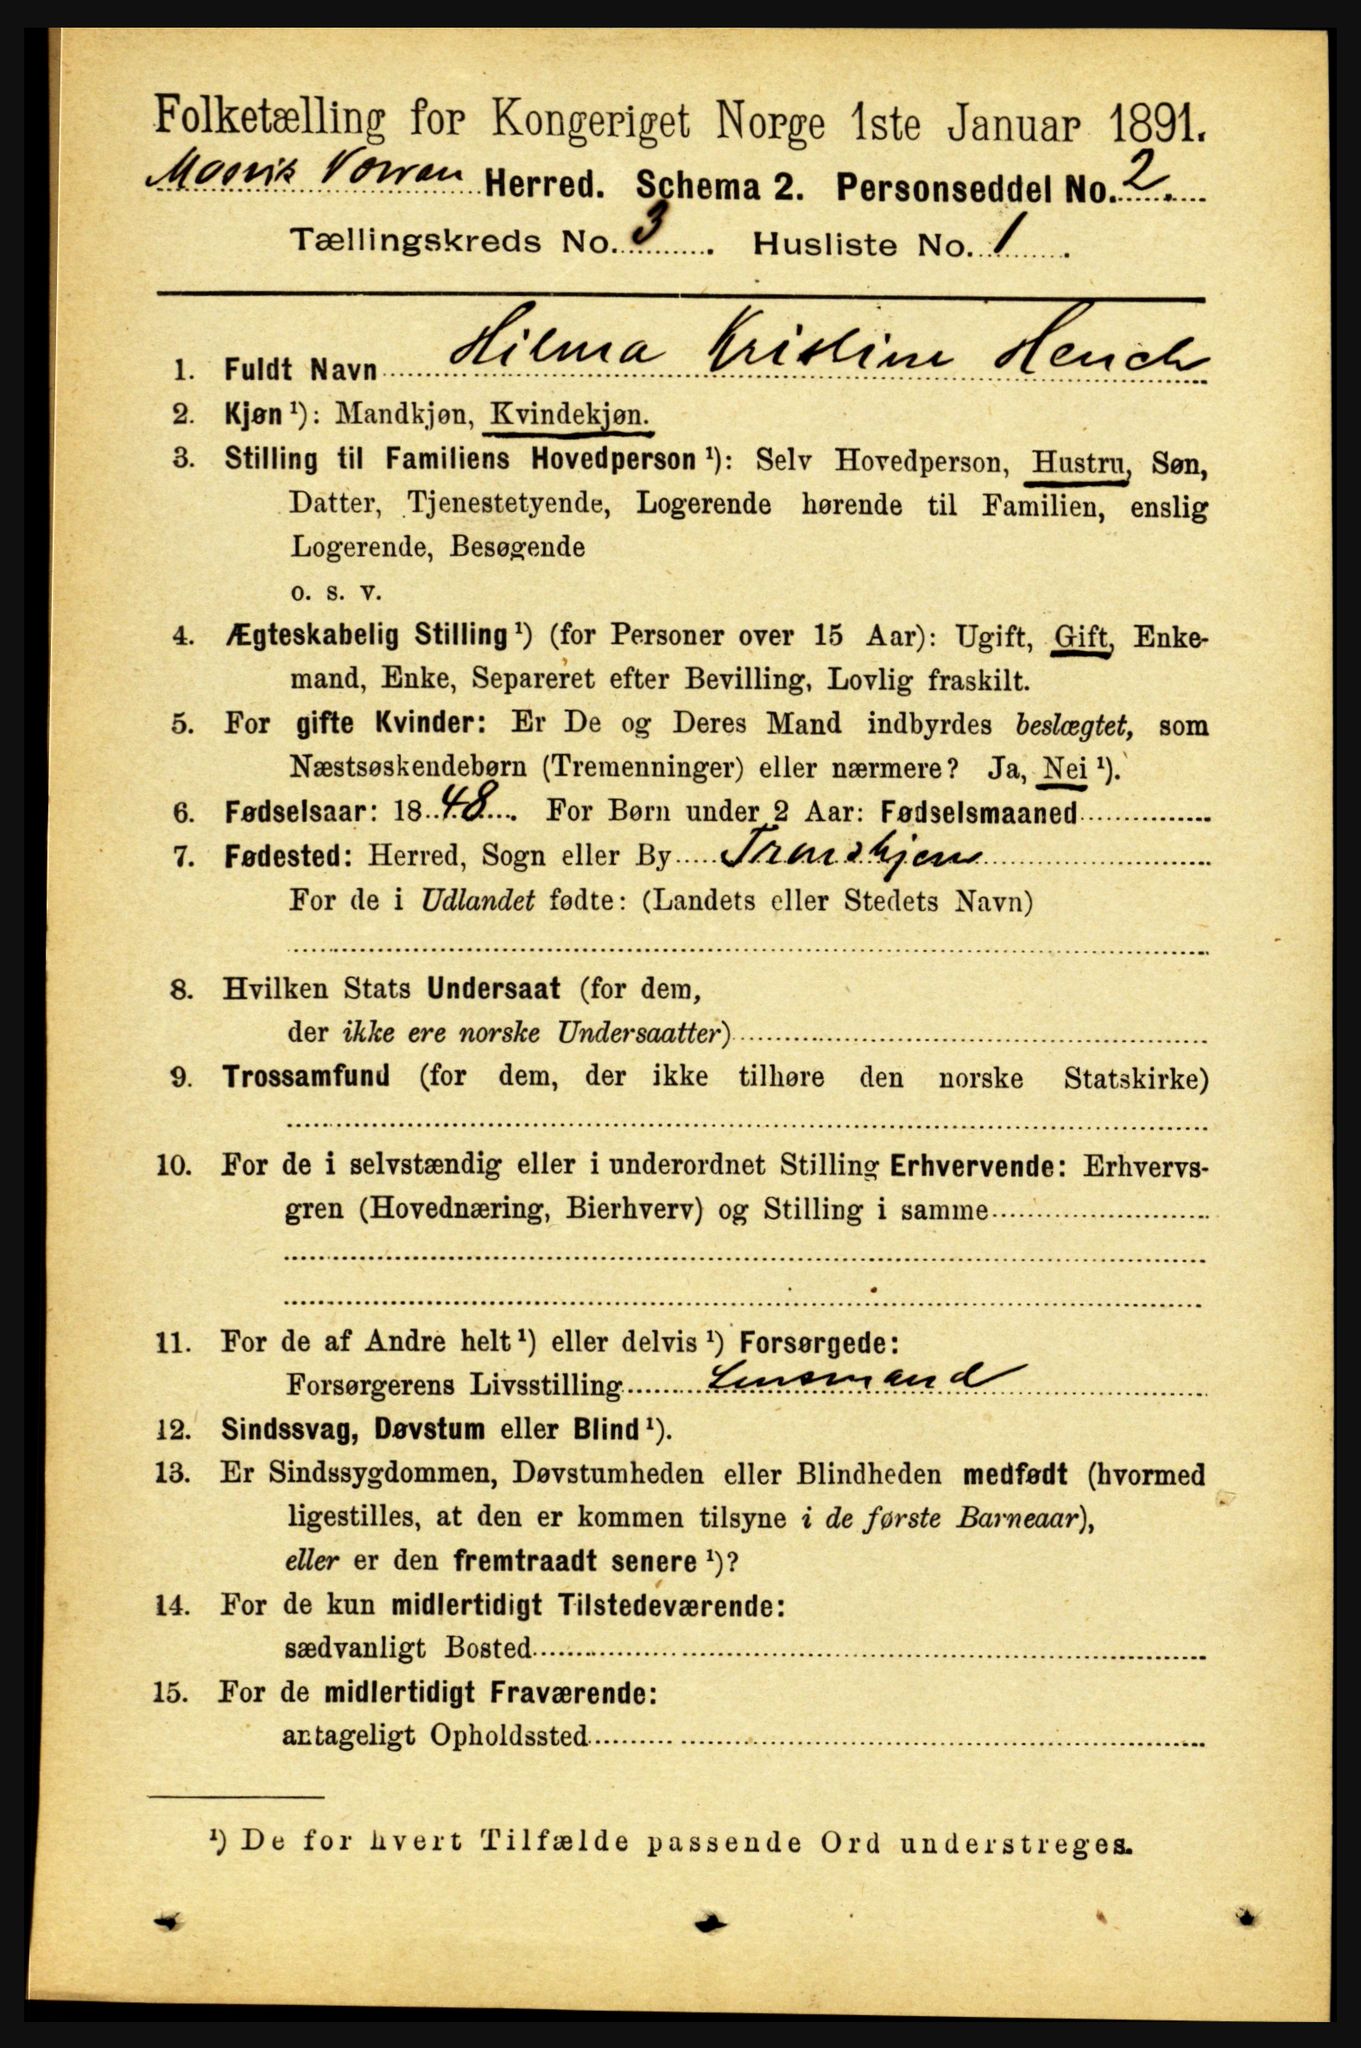 Folketælling for Kongeriget Norge 1ste Januar 1891.
Mosvik Verran Herred. Schema 2. Personseddel No. 2.
Tællingskreds No. 3. Husliste No. 1.
1. Fuldt Navn Hilma Kristine Hench
2. Kjøn ¹): Mandkjøn, Kvindekjøn.
3. Stilling til Familiens Hovedperson ¹): Selv Hovedperson, Hustru, Søn,
Datter, Tjenestetyende, Logerende hørende til Familien, enslig
Logerende, Besøgende
o. s. v.
4. Ægteskabelig Stilling ¹) (for Personer over 15 Aar): Ugift, Gift, Enke-
mand, Enke, Separeret efter Bevilling, Lovlig fraskilt.
5. For gifte Kvinder: Er De og Deres Mand indbyrdes beslægtet, som
Næstsøskendebørn (Tremenninger) eller nærmere? Ja, Nei ¹).
6. Fødselsaar: 1848. For Børn under 2 Aar: Fødselsmaaned
7. Fødested: Herred, Sogn eller By Trondhjem
For de i Udlandet fødte: (Landets eller Stedets Navn)
8. Hvilken Stats Undersaat (for dem,
der ikke ere norske Undersaatter)
9. Trossamfund (for dem, der ikke tilhøre den norske Statskirke)
10. For de i selvstændig eller i underordnet Stilling Erhvervende: Erhvervs-
gren (Hovednæring, Bierhverv) og Stilling i samme
11. For de af Andre helt ¹) eller delvis ¹) Forsørgede:
Forsørgerens Livsstilling Lensmand
12. Sindssvag, Døvstum eller Blind ¹).
13. Er Sindssygdommen, Døvstumheden eller Blindheden medfødt (hvormed
ligestilles, at den er kommen tilsyne i de første Barneaar),
eller er den fremtraadt senere ¹)?
14. For de kun midlertidigt Tilstedeværende:
sædvanligt Bosted
15. For de midlertidigt Fraværende:
antageligt Opholdssted
¹) De for hvert Tilfælde passende Ord understreges.